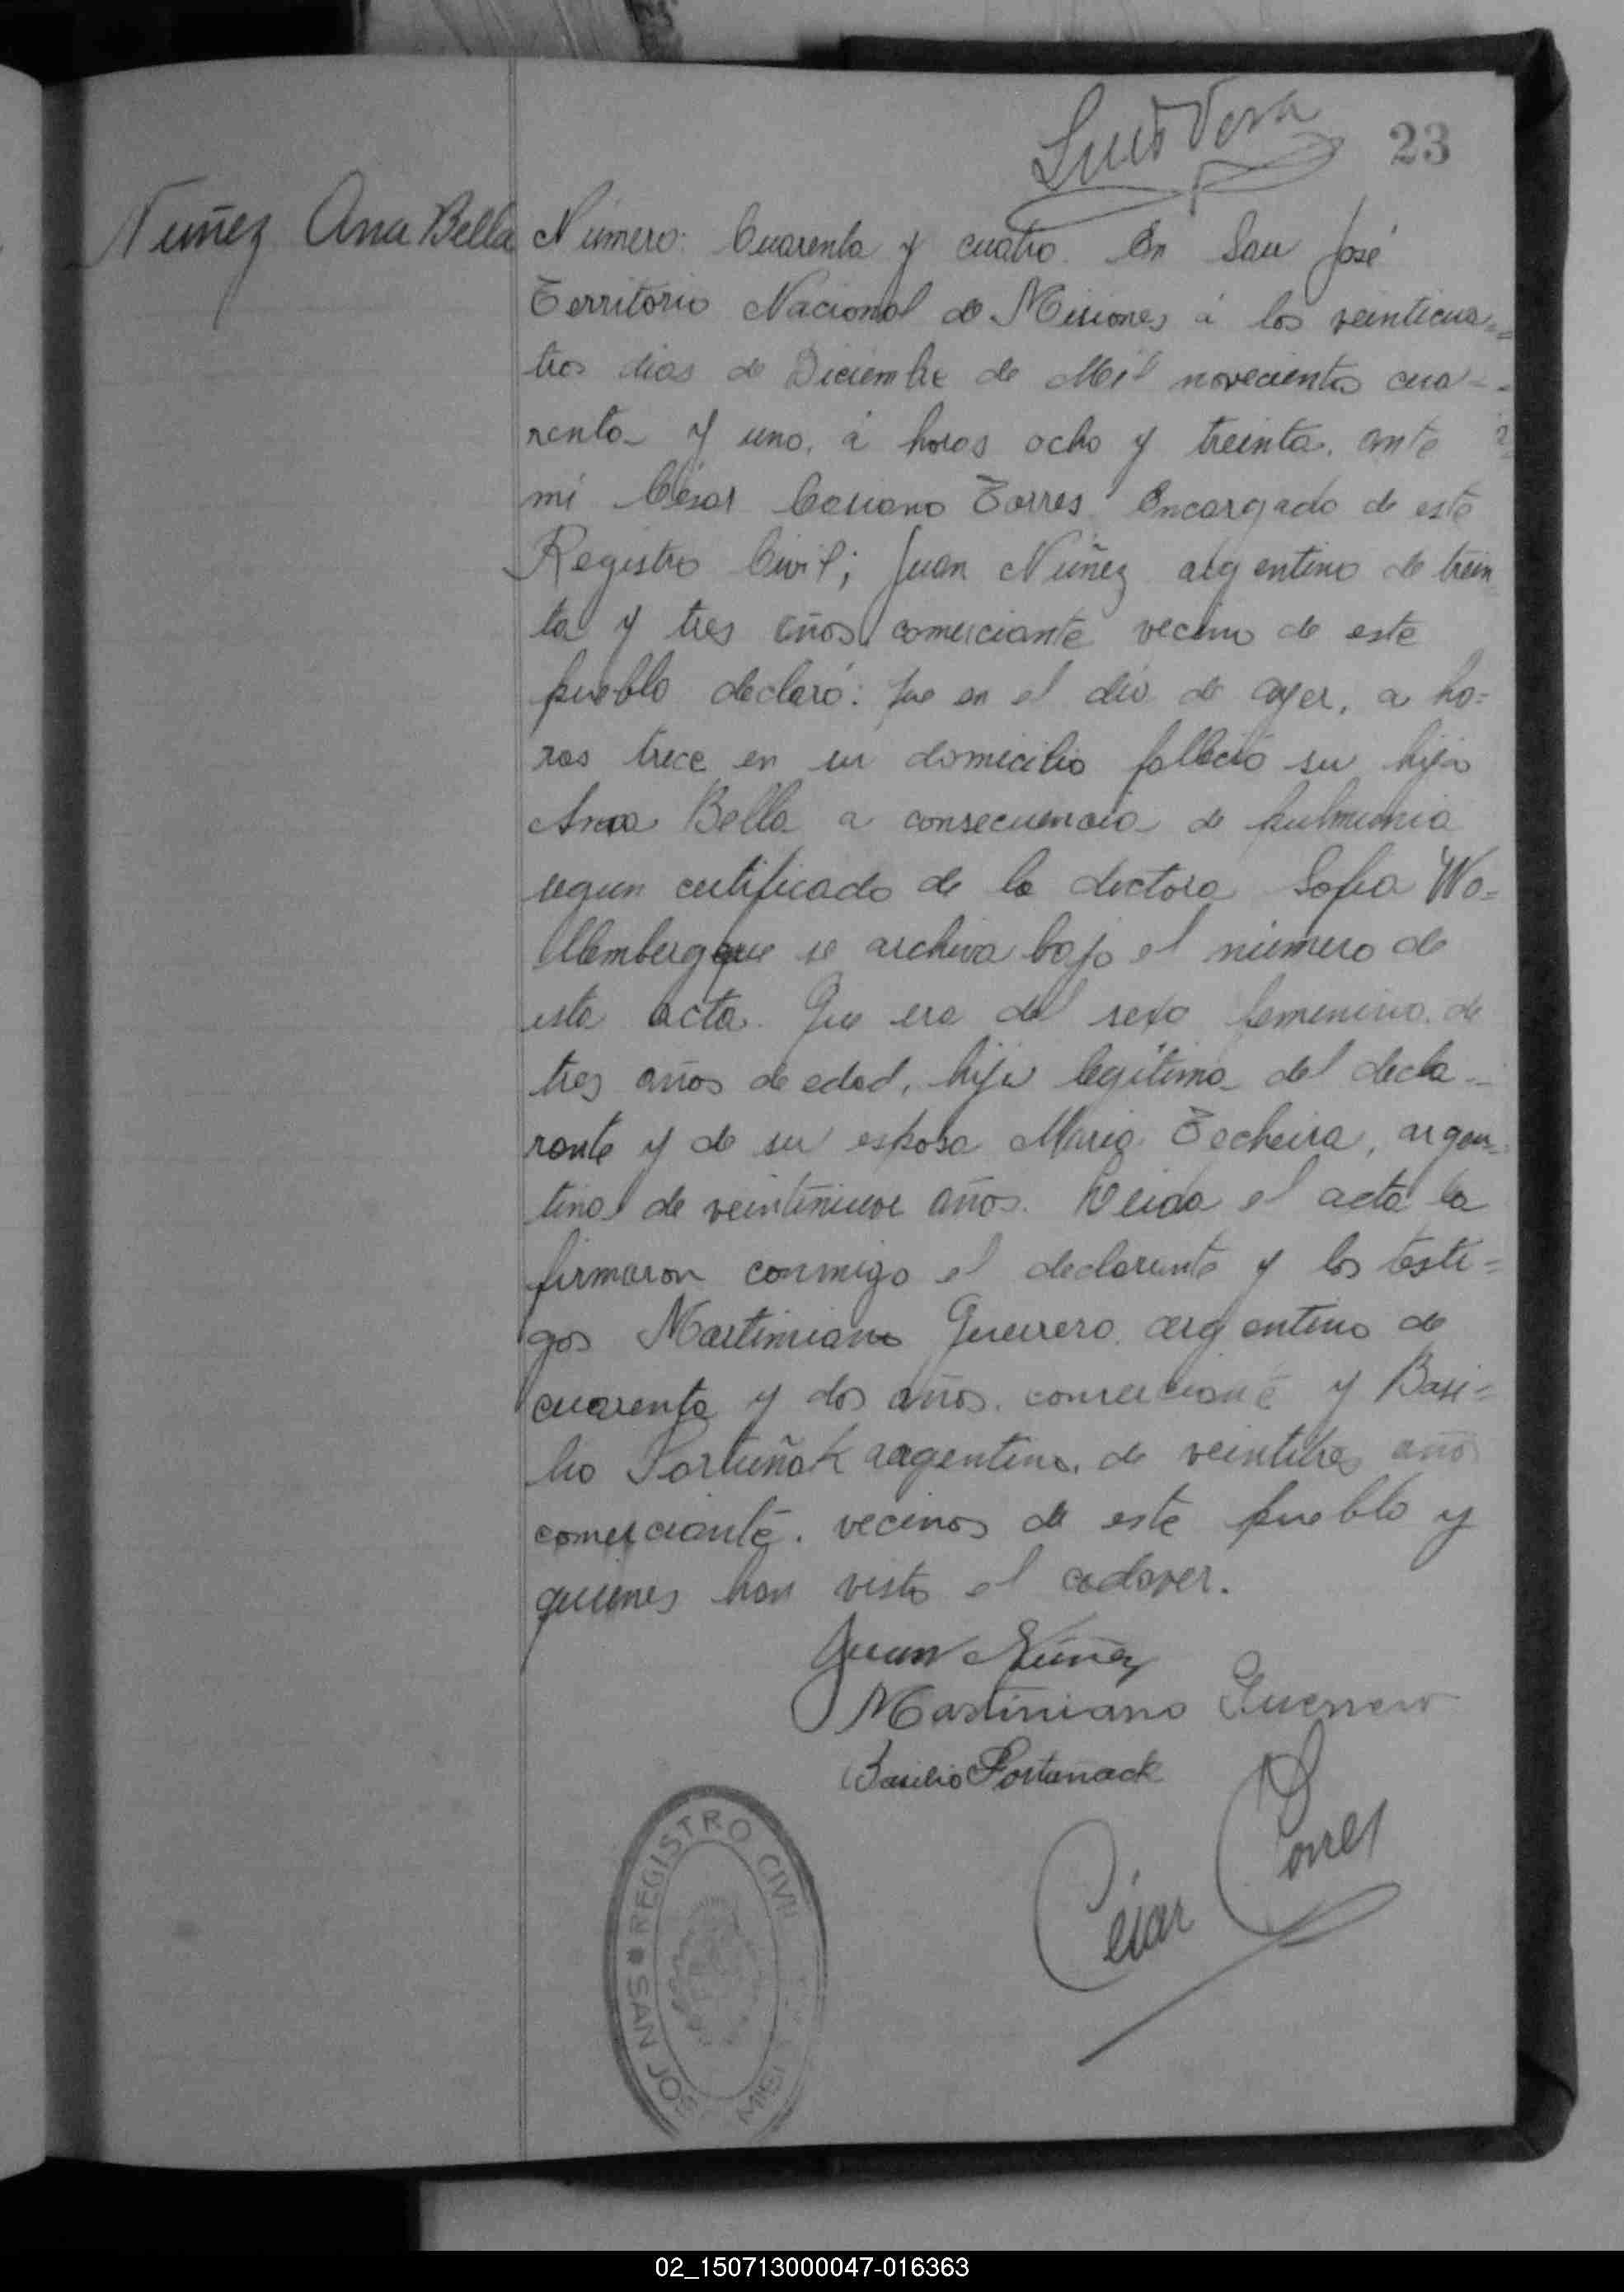 Luis Vera
23
Nuñez Ana Bella
Número: Cuarenta y cuatro. En San José
Territorio Nacional de Misiones á los veinticua=
tros dias de Diciembre de Mil novecientos cua=
renta y uno, á horas ocho y treinta, ante
mi César Casiano Torres Encargado de este
Registro Civil; Juan Núñez argentino de trein
ta y tres años comerciante vecino de este
pueblo declaró: Que en el dia de ayer, a ho=
ras trece en su domicilio falleció su hija
Anaa Bella a consecuencia de pulmunia
segun certificado de la doctora Sofia Wo=
llemberg que se archiva bajo el número de
esta acta. Que era del sexo femenino, de
tres años de edad, hija legítima del decla=
rante y de su esposa Maria Techeira, argen=
tina de veintinueve años. Leida el acta la
firmaron conmigo el declarante y los testi=
gos Martiniano Guerrero argentino de
cuarenta y dos años, comerciante y Basi=
lio Portuñak argentino, de veintitres años
comerciante, vecinos de este pueblo y
quienes han visto el cadaver.
Juan Núñez
Martiniano Guerrero
Basilio Portunack
César Torres
REGISTRO CIVIL
SAN JOS
MISI
02_150713000047-016363